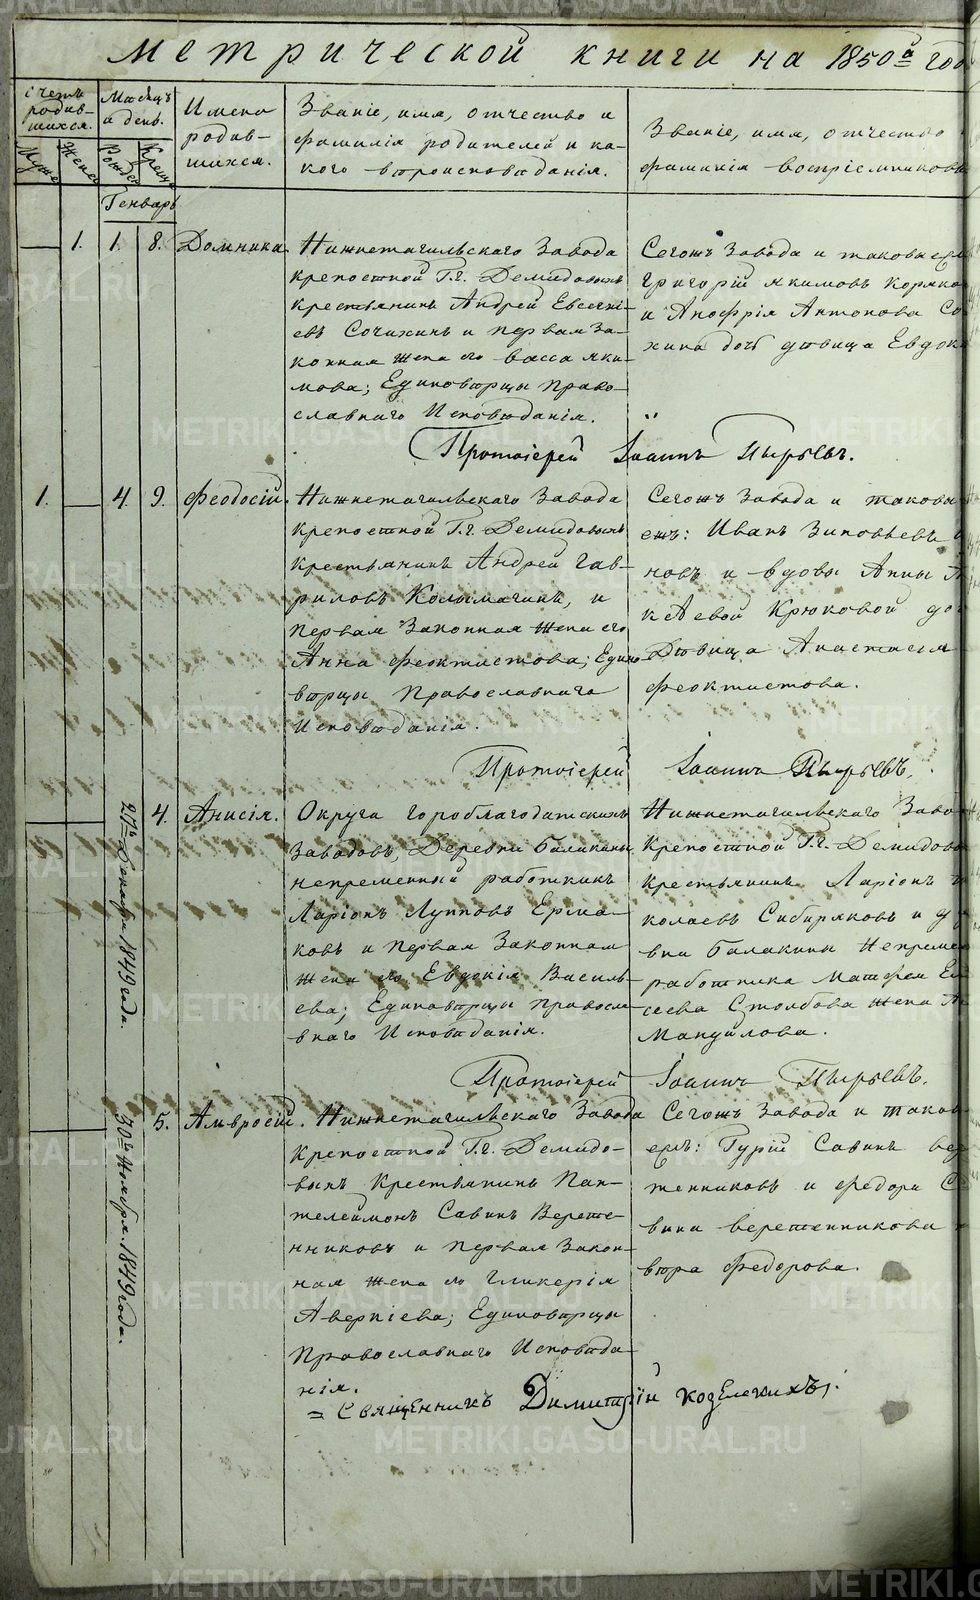 метрической книги на 1850й годъ
Счетъ родив-шихся.
Мѣсяцъ и день.
Имена родив-шихся.
Званіе, имя, отчество и
фамилія родителей и ка-
кого вѣроисповѣданія.
Званіе, имя, отчество
фамилія воспріемниковъ
Муж.
Жен.
Рожд.
Крещ.
Генварь
1. 1. 8. Домника.
Нижнетагильскаго Завода
крепостной Г.г. Демидовыхъ
крестьянинъ Андрей Евсегні-
евъ Сочихинъ и первая за-
конная жена его Васса Яки-
мова; Единовѣрцы Право-
славнаго Исповѣданія.
Сегожъ Завода и таковаже
Григорій Якимовъ Коряко
и Анофрія Антонова Со
хина дочь дѣвица Евдок
Протоіерей Іоаннъ Пырьевъ.
1. 4. 9. Феодосій.
Нижнетагильскаго Завода
крепостной Г.г. Демидовыхъ
крестьянинъ Андрей Гав-
риловъ Колымагинъ, и
первая Законная жена его
Анна Феоктистова; Едино
вѣрцы Православнаго
Исповѣданія.
Сегожъ Завода и таковы
ежъ: Иванъ Зиновьевъ
новъ и вдовы Анны
кѣевой Крюковой до
Дѣвица Анастасія
Феоктистова.
Протоіерей Іоаннъ Пырьевъ.
27го Декабря 1849 года
4. Анисія.
Округа Гороблагодатскихъ
Заводовъ, Деревни Балакины
непременный работникъ
Ларіонъ Лупповъ Ерма-
ковъ и первая Законная
жена его Евдокія Василь-
ева; Единовѣрцы правосла
внаго Исповѣданія.
Нижнетагильскаго Заво
Крепостной Г.г. Демидов
крестьянинъ Ларіонъ Н
колаевъ Сибиряковъ и д
вни Балакины Непреме
работника Матфея Ел
сеева Столбова жена
Мануйлова.
Протоіерей Іоаннъ Пырьевъ.
30го Ноября 1849 года.
5. Амвросій.
Нижнетагильскаго Завода
крепостной Г.г. Демидо-
выхъ Крестьянинъ Пан-
телеймонъ Савинъ Верете-
нниковъ и первая Закон-
ная жена его Гликерія
Аверкіева; Единовѣрцы
Православнаго Исповѣда-
нія.
Сегожъ Завода и таков
ежъ: Гурій Савинъ Вере
тенниковъ и Федора С
вина Веретенникова
вѣра Федорова.
= Священникъ Димитрій Козельскихъ.
METRIKI.GASO-URAL.RU